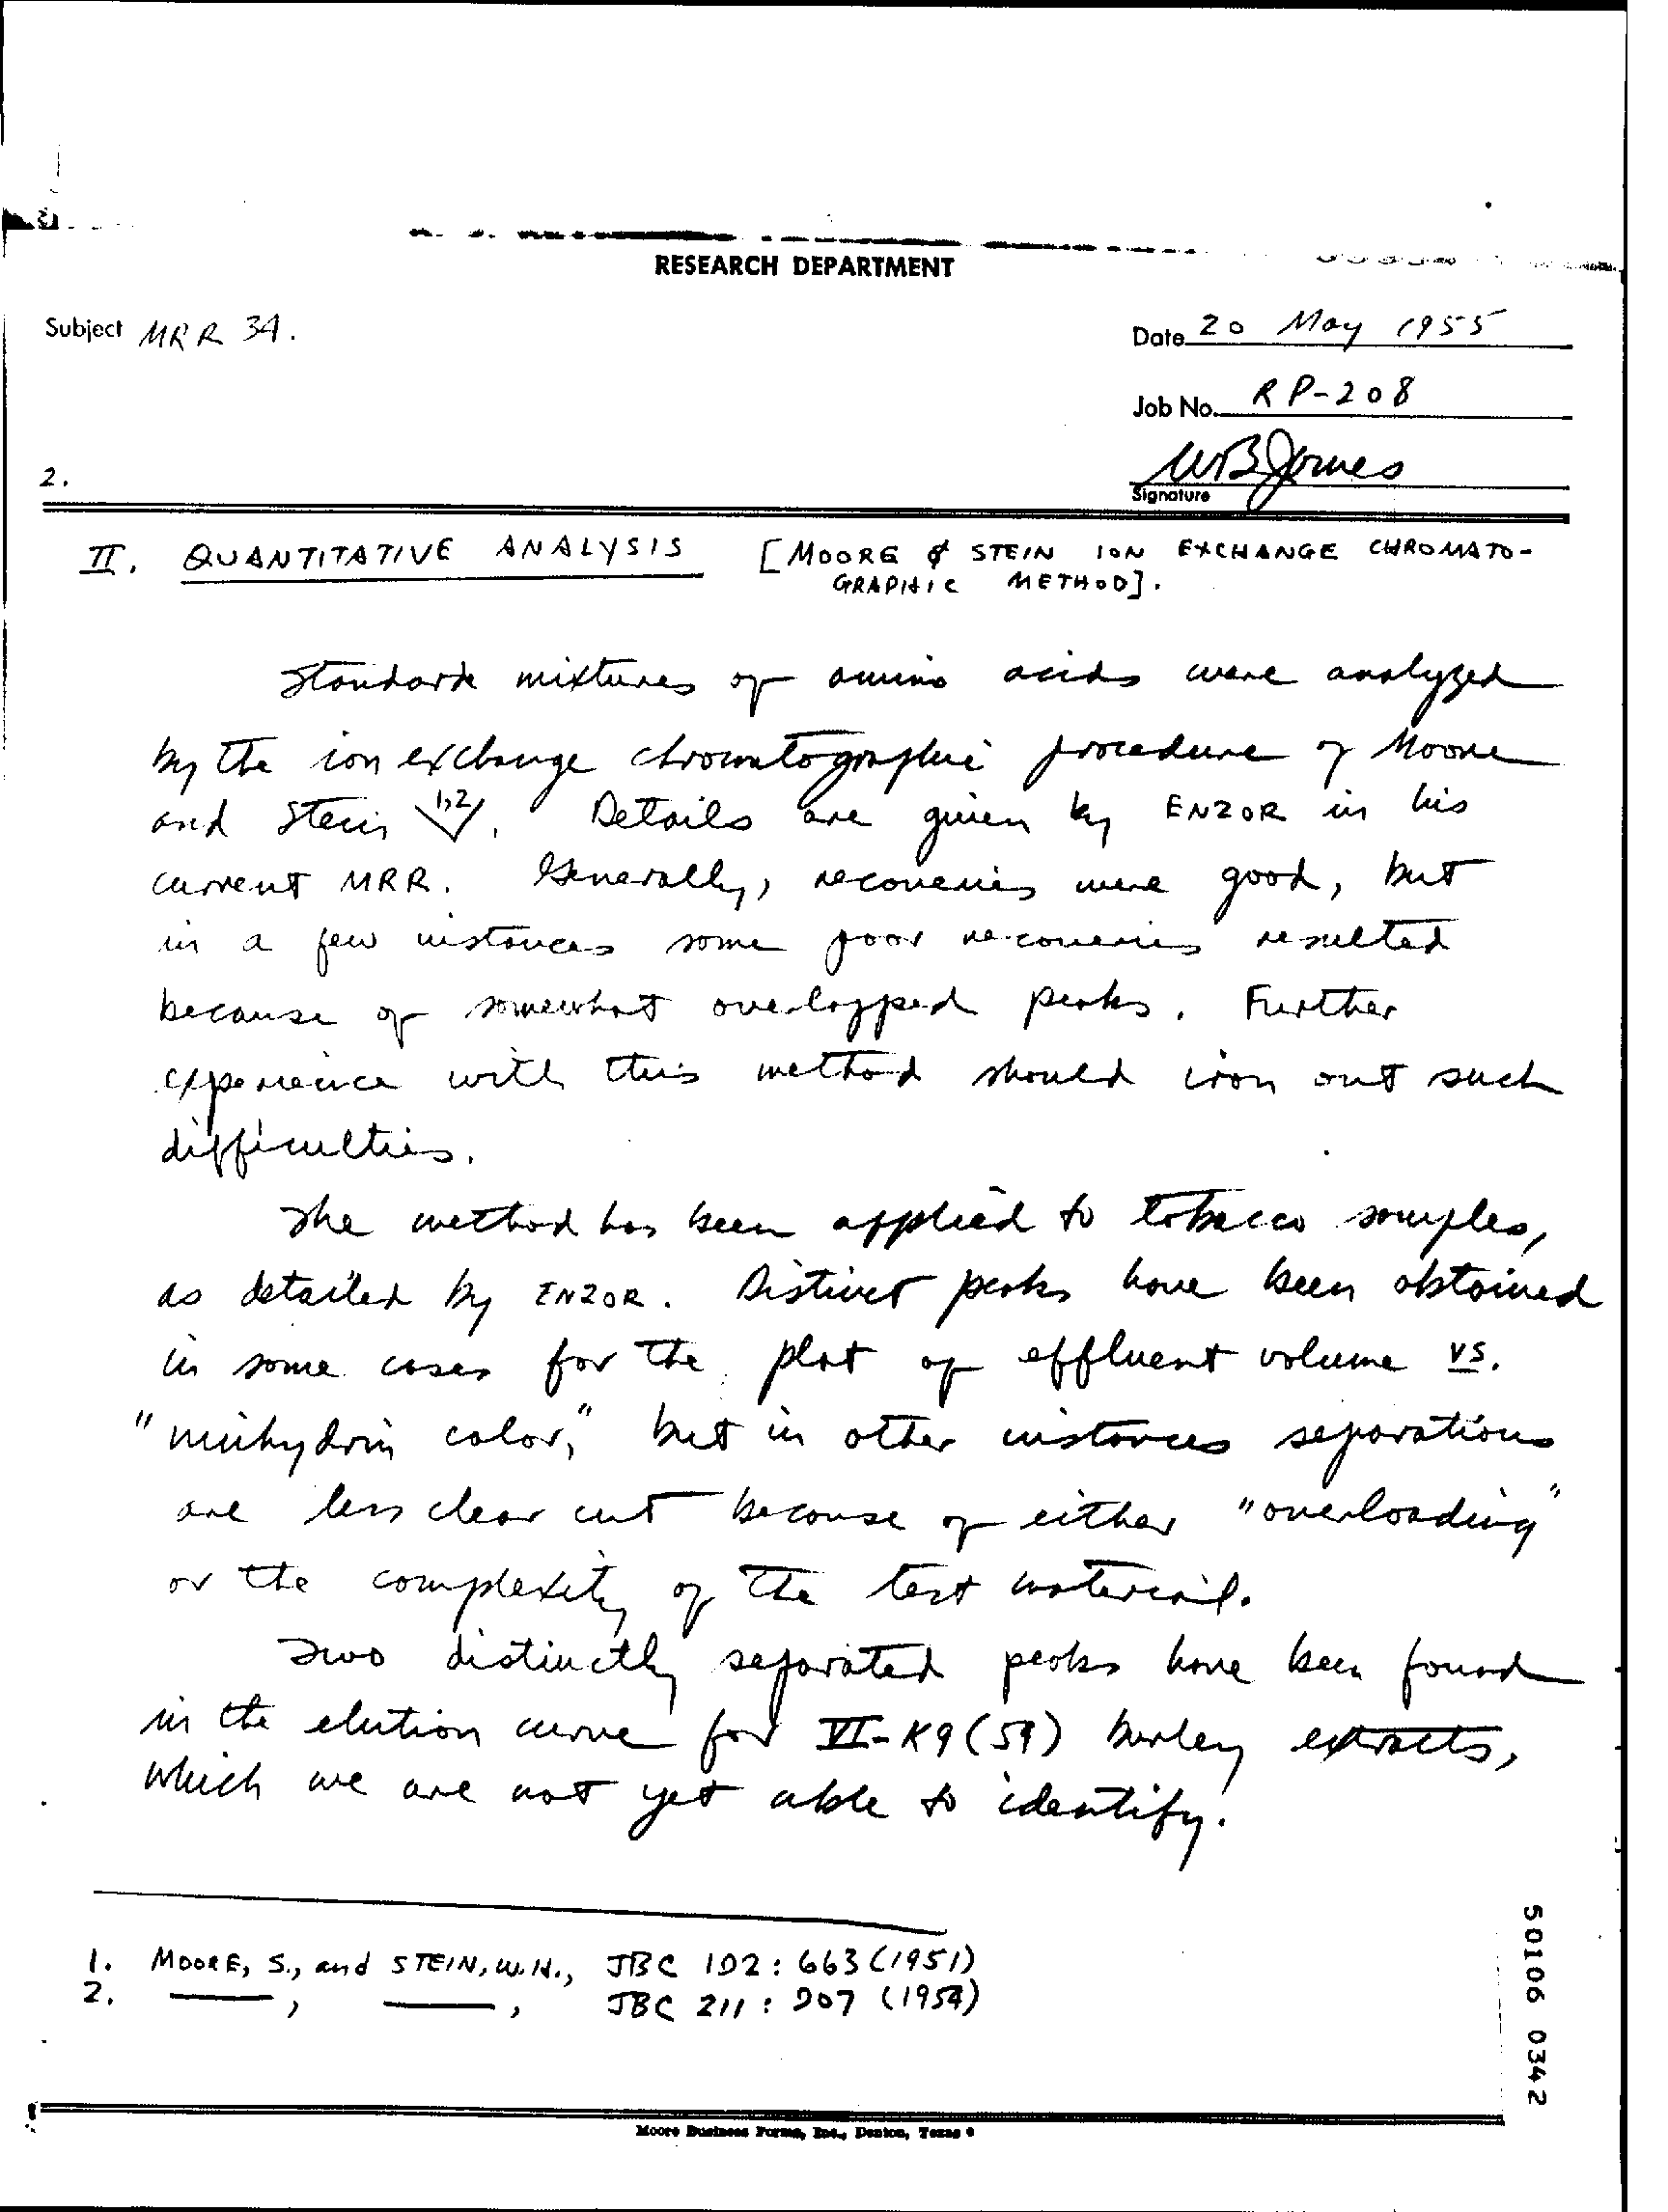 RESEARCH DEPARTMENT
Subject MRR 34.
Date 20 May 1955
Job No. RP-208
WBJones
Signature
2.
II. QUANTITATIVE ANALYSIS [MOORE & STEIN ION EXCHANGE CHROMATO-
GRAPHIC METHOD].
Standard mixtures of amino acids were analyzed
by the ion exchange chromatographic procedure of Moore
and Stein 1,2. Details are given by ENZOR in his
current MRR. Generally, recoveries were good, but
in a few instances some poor recoveries resulted
because of somewhat overlapped peaks. Further
experience with this method should iron out such
difficulties.
The method has been applied to tobacco samples,
as detailed by ENZOR. Distinct peaks have been obtained
in some cases for the plot of effluent volume vs.
"ninhydrin color," but in other instances separations
are less clear cut because of either "overloading"
or the complexity of the test material.
Two distinctly separated peaks have been found
in the elution curve for VI-K9(54) burley extracts,
which we are not yet able to identify.
1. MOORE, S., and STEIN, W.H., JBC 192: 663 (1951)
2. ——, ——, JBC 211: 907 (1954)
50106 0342
Moore Business Forms, Inc., Denton, Texas